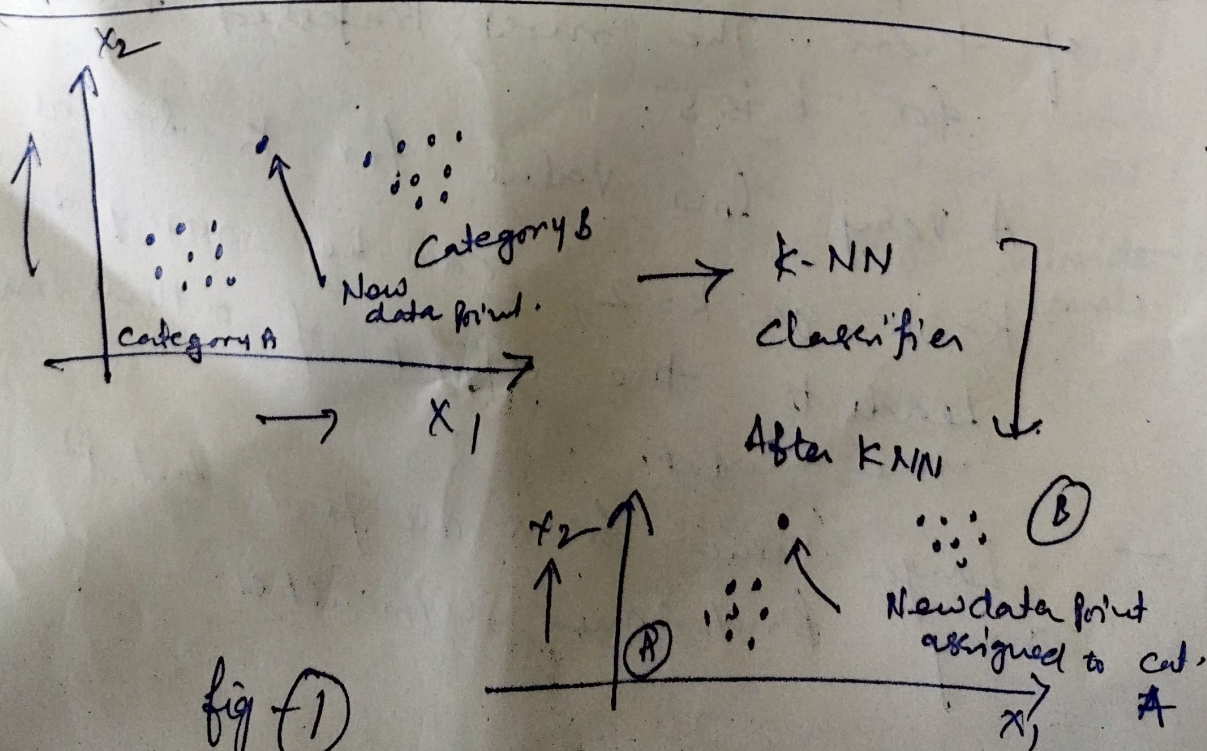 X2
Category B
New
data point.
Category A
X1
K-NN
Classifier
After KNN
X2
B
New data point
assigned to cat.
A
A
X1
fig-1